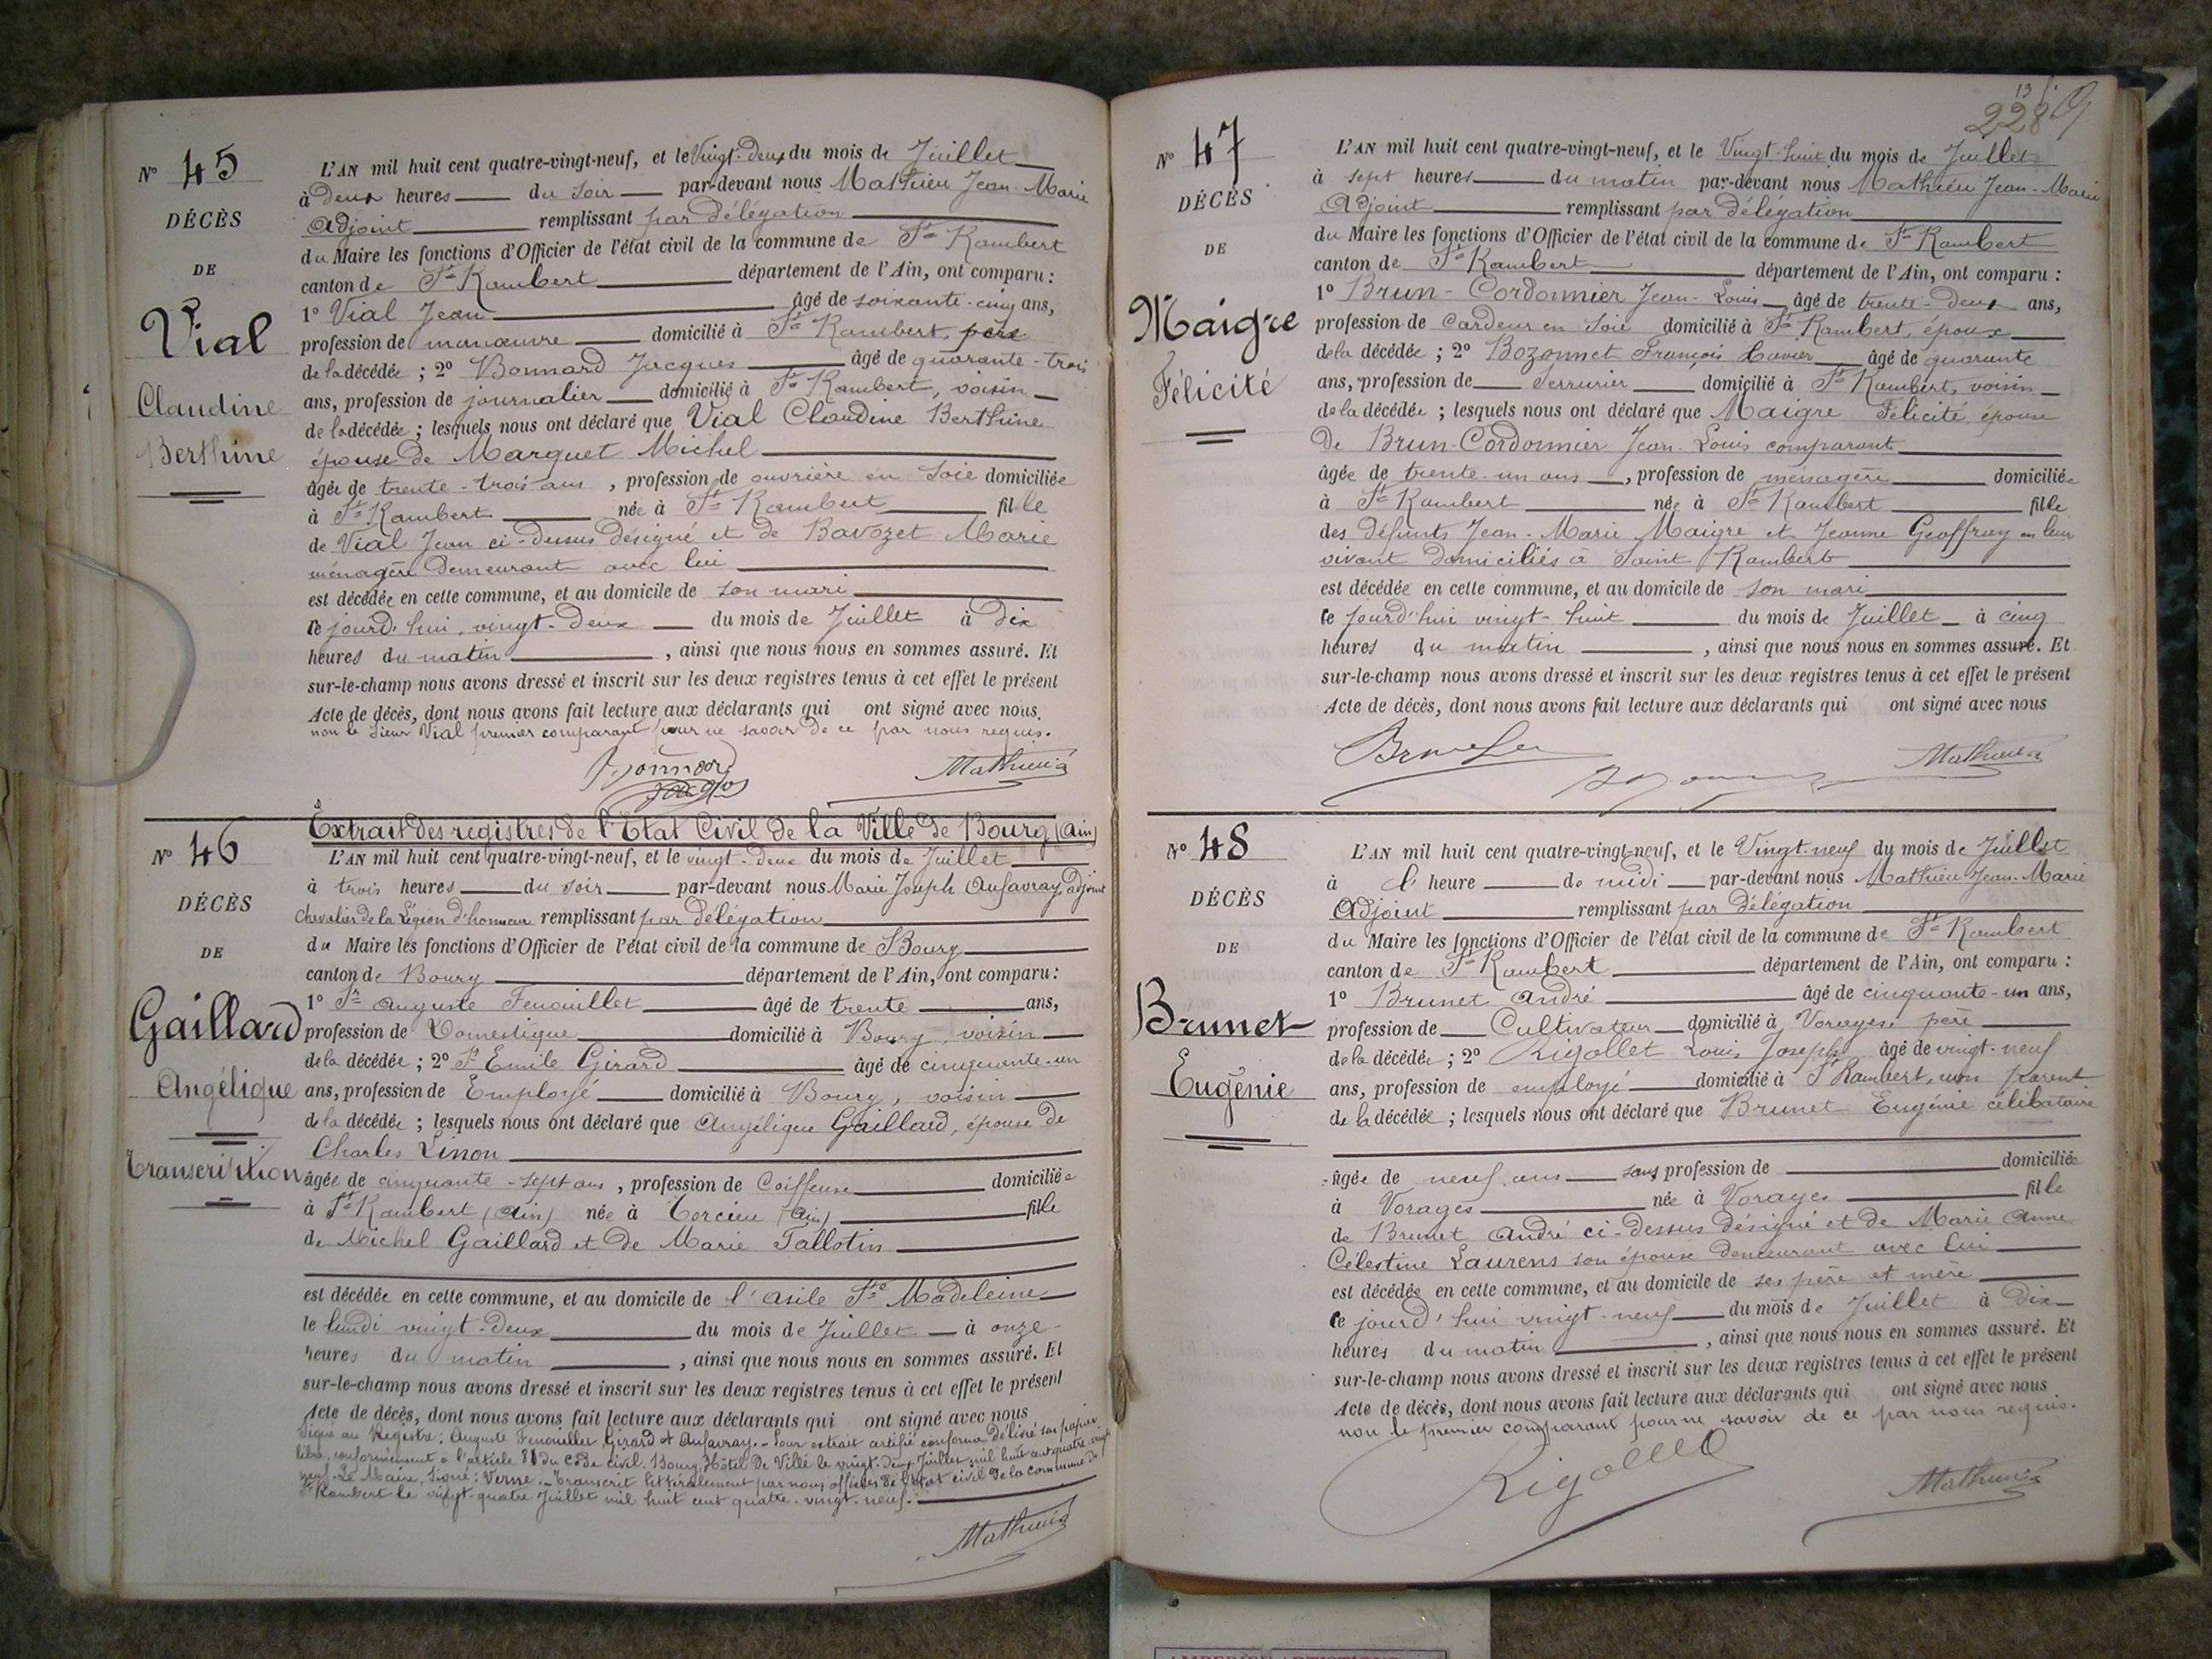 N° 45
DÉCÈS
DE
Vial
Claudine
Berthine
L'AN mil huit cent quatre-vingt-neuf, et le Vingt-deux du mois de Juillet
à Deux heures du soir par-devant nous Mathieu Jean-Marie
Adjoint remplissant par Délégation
du Maire les fonctions d'Officier de l'état civil de la commune de St Rambert
canton de St Rambert département de l'Ain, ont comparu :
1° Vial Jean âgé de soixante-cinq ans,
profession de manœuvre domicilié à St Rambert, père
de la décédée ; 2° Bonnard Jacques âgé de quarante-trois
ans, profession de journalier domicilié à St Rambert, voisin
de la décédée ; lesquels nous ont déclaré que Vial Claudine Berthine
épouse de Marquet Michel
âgée de trente-trois ans, profession de ouvrière en soie domiciliée
à St Rambert née à St Rambert fille
de Vial Jean ci-dessus désigné et de Bavozet Marie
ménagère demeurant avec lui
est décédée en cette commune, et au domicile de son mari
ce jourd'hui, vingt-deux du mois de Juillet à Dix
heures du matin, ainsi que nous nous en sommes assuré. Et
sur-le-champ nous avons dressé et inscrit sur les deux registres tenus à cet effet le présent
Acte de décès, dont nous avons fait lecture aux déclarants qui ont signé avec nous.
non le sieur Vial premier comparant pour ne savoir de ce par nous requis.
Bonnard Mathieu
Jacques
N° 46
DÉCÈS
DE
Gaillard
Angélique
Transcription
Extrait des registres de l'Etat Civil de la Ville de Bourg (Ain)
L'AN mil huit cent quatre-vingt-neuf, et le vingt-deux du mois de Juillet
à trois heures du soir par-devant nous Marie Joseph Aufavray, adjoint
Chevalier de la Légion d'honneur remplissant par délégation
du Maire les fonctions d'Officier de l'état civil de la commune de Bourg
canton de Bourg département de l'Ain, ont comparu :
1° Sr Auguste Fenouillet âgé de trente ans,
profession de Domestique domicilié à Bourg, voisin
de la décédée ; 2° Sr Emile Girard âgé de cinquante-un
ans, profession de Employé domicilié à Bourg, voisin
de la décédée ; lesquels nous ont déclaré que Angélique Gaillard, épouse de
Charles Linon
âgée de cinquante-sept ans, profession de Coiffeuse domiciliée
à St Rambert (Ain) née à Torcieu (Ain) fille
de Michel Gaillard et de Marie Tallotin
est décédée en cette commune, et au domicile de l'asile Ste Madeleine
le lundi vingt-deux du mois de Juillet à onze
heures du matin, ainsi que nous nous en sommes assuré. Et
sur-le-champ nous avons dressé et inscrit sur les deux registres tenus à cet effet le présent
Acte de décès, dont nous avons fait lecture aux déclarants qui ont signé avec nous
Signé au Registre : Auguste Fenouillet Girard et Aufavray. - Pour extrait certifié conforme délivré sur papier
libre, conformément à l'article 80 du Code civil. Bourg, Hôtel de Ville le vingt-deux Juillet mil huit cent quatre-vingt
neuf. Le Maire, Signé : Verne. - Transcrit littéralement par nous officier de l'état civil de la commune de
St Rambert le vingt-quatre Juillet mil huit cent quatre-vingt-neuf.
Mathieu
13
228 9
N° 47
DÉCÈS
DE
Maigre
Félicité
L'AN mil huit cent quatre-vingt-neuf, et le Vingt-huit du mois de Juillet
à sept heures du matin par-devant nous Mathieu Jean-Marie
Adjoint remplissant par délégation
du Maire les fonctions d'Officier de l'état civil de la commune de St Rambert
canton de St Rambert département de l'Ain, ont comparu :
1° Brun-Cordonnier Jean-Louis âgé de trente-deux ans,
profession de Cardeur en soie domicilié à St Rambert, époux
de la décédée ; 2° Bozonnet François Xavier âgé de quarante
ans, profession de Serrurier domicilié à St Rambert, voisin
de la décédée ; lesquels nous ont déclaré que Maigre Félicité épouse
de Brun-Cordonnier Jean-Louis comparant
âgée de trente-un ans, profession de ménagère domiciliée
à St Rambert née à St Rambert fille
des défunts Jean-Marie Maigre et Jeanne Geoffray en leur
vivant domiciliés à Saint Rambert
est décédée en cette commune, et au domicile de son mari
ce jourd'hui vingt-huit du mois de Juillet à cinq
heures du matin, ainsi que nous nous en sommes assuré. Et
sur-le-champ nous avons dressé et inscrit sur les deux registres tenus à cet effet le présent
Acte de décès, dont nous avons fait lecture aux déclarants qui ont signé avec nous
Mathieu
N° 48
DÉCÈS
DE
Brunet
Eugénie
L'AN mil huit cent quatre-vingt-neuf, et le Vingt-neuf du mois de Juillet
à l'heure de midi par-devant nous Mathieu Jean-Marie
Adjoint remplissant par délégation
du Maire les fonctions d'Officier de l'état civil de la commune de St Rambert
canton de St Rambert département de l'Ain, ont comparu :
1° Brunet André âgé de cinquante-un ans,
profession de Cultivateur domicilié à Vorages, père
de la décédée ; 2° Rigollet Louis Joseph âgé de vingt-neuf
ans, profession de employé domicilié à St Rambert, non parent
de la décédée ; lesquels nous ont déclaré que Brunet Eugénie célibataire
âgée de neuf ans sans profession de domiciliée
à Vorages née à Vorages fille
de Brunet André ci-dessus désigné et de Marie Anne
Célestine Laurens son épouse demeurant avec lui
est décédée en cette commune, et au domicile de ses père et mère
ce jourd'hui vingt-neuf du mois de Juillet à Dix
heures du matin, ainsi que nous nous en sommes assuré. Et
sur-le-champ nous avons dressé et inscrit sur les deux registres tenus à cet effet le présent
Acte de décès, dont nous avons fait lecture aux déclarants qui ont signé avec nous
non le premier comparant pour ne savoir de ce par nous requis.
Rigollet
Mathieu